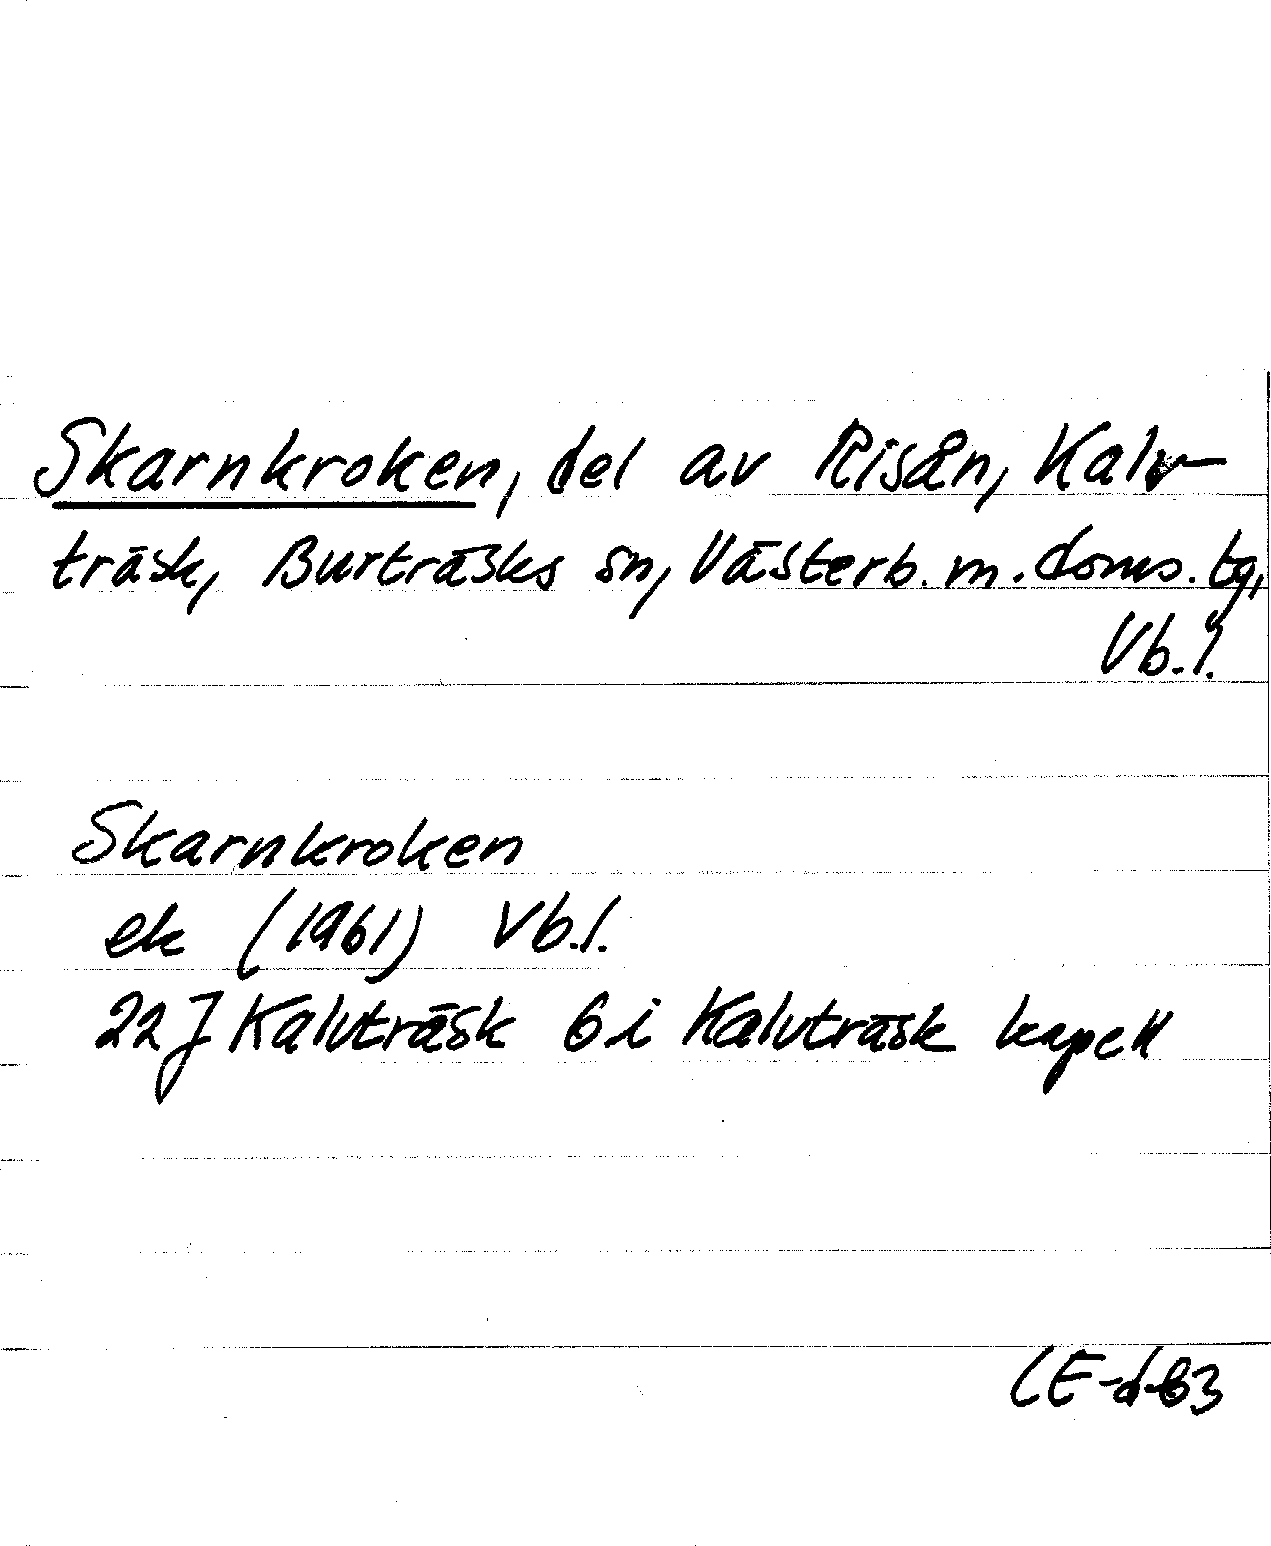 Skarnkroken, del av Risån, Kalv-
träsk, Burträsks sn, Västerb. m. doms. tg,
Vb. l.
Skarnkroken
ek (1961) Vb. l.
22 J Kalvträsk 6 i Kalvträsk kapell